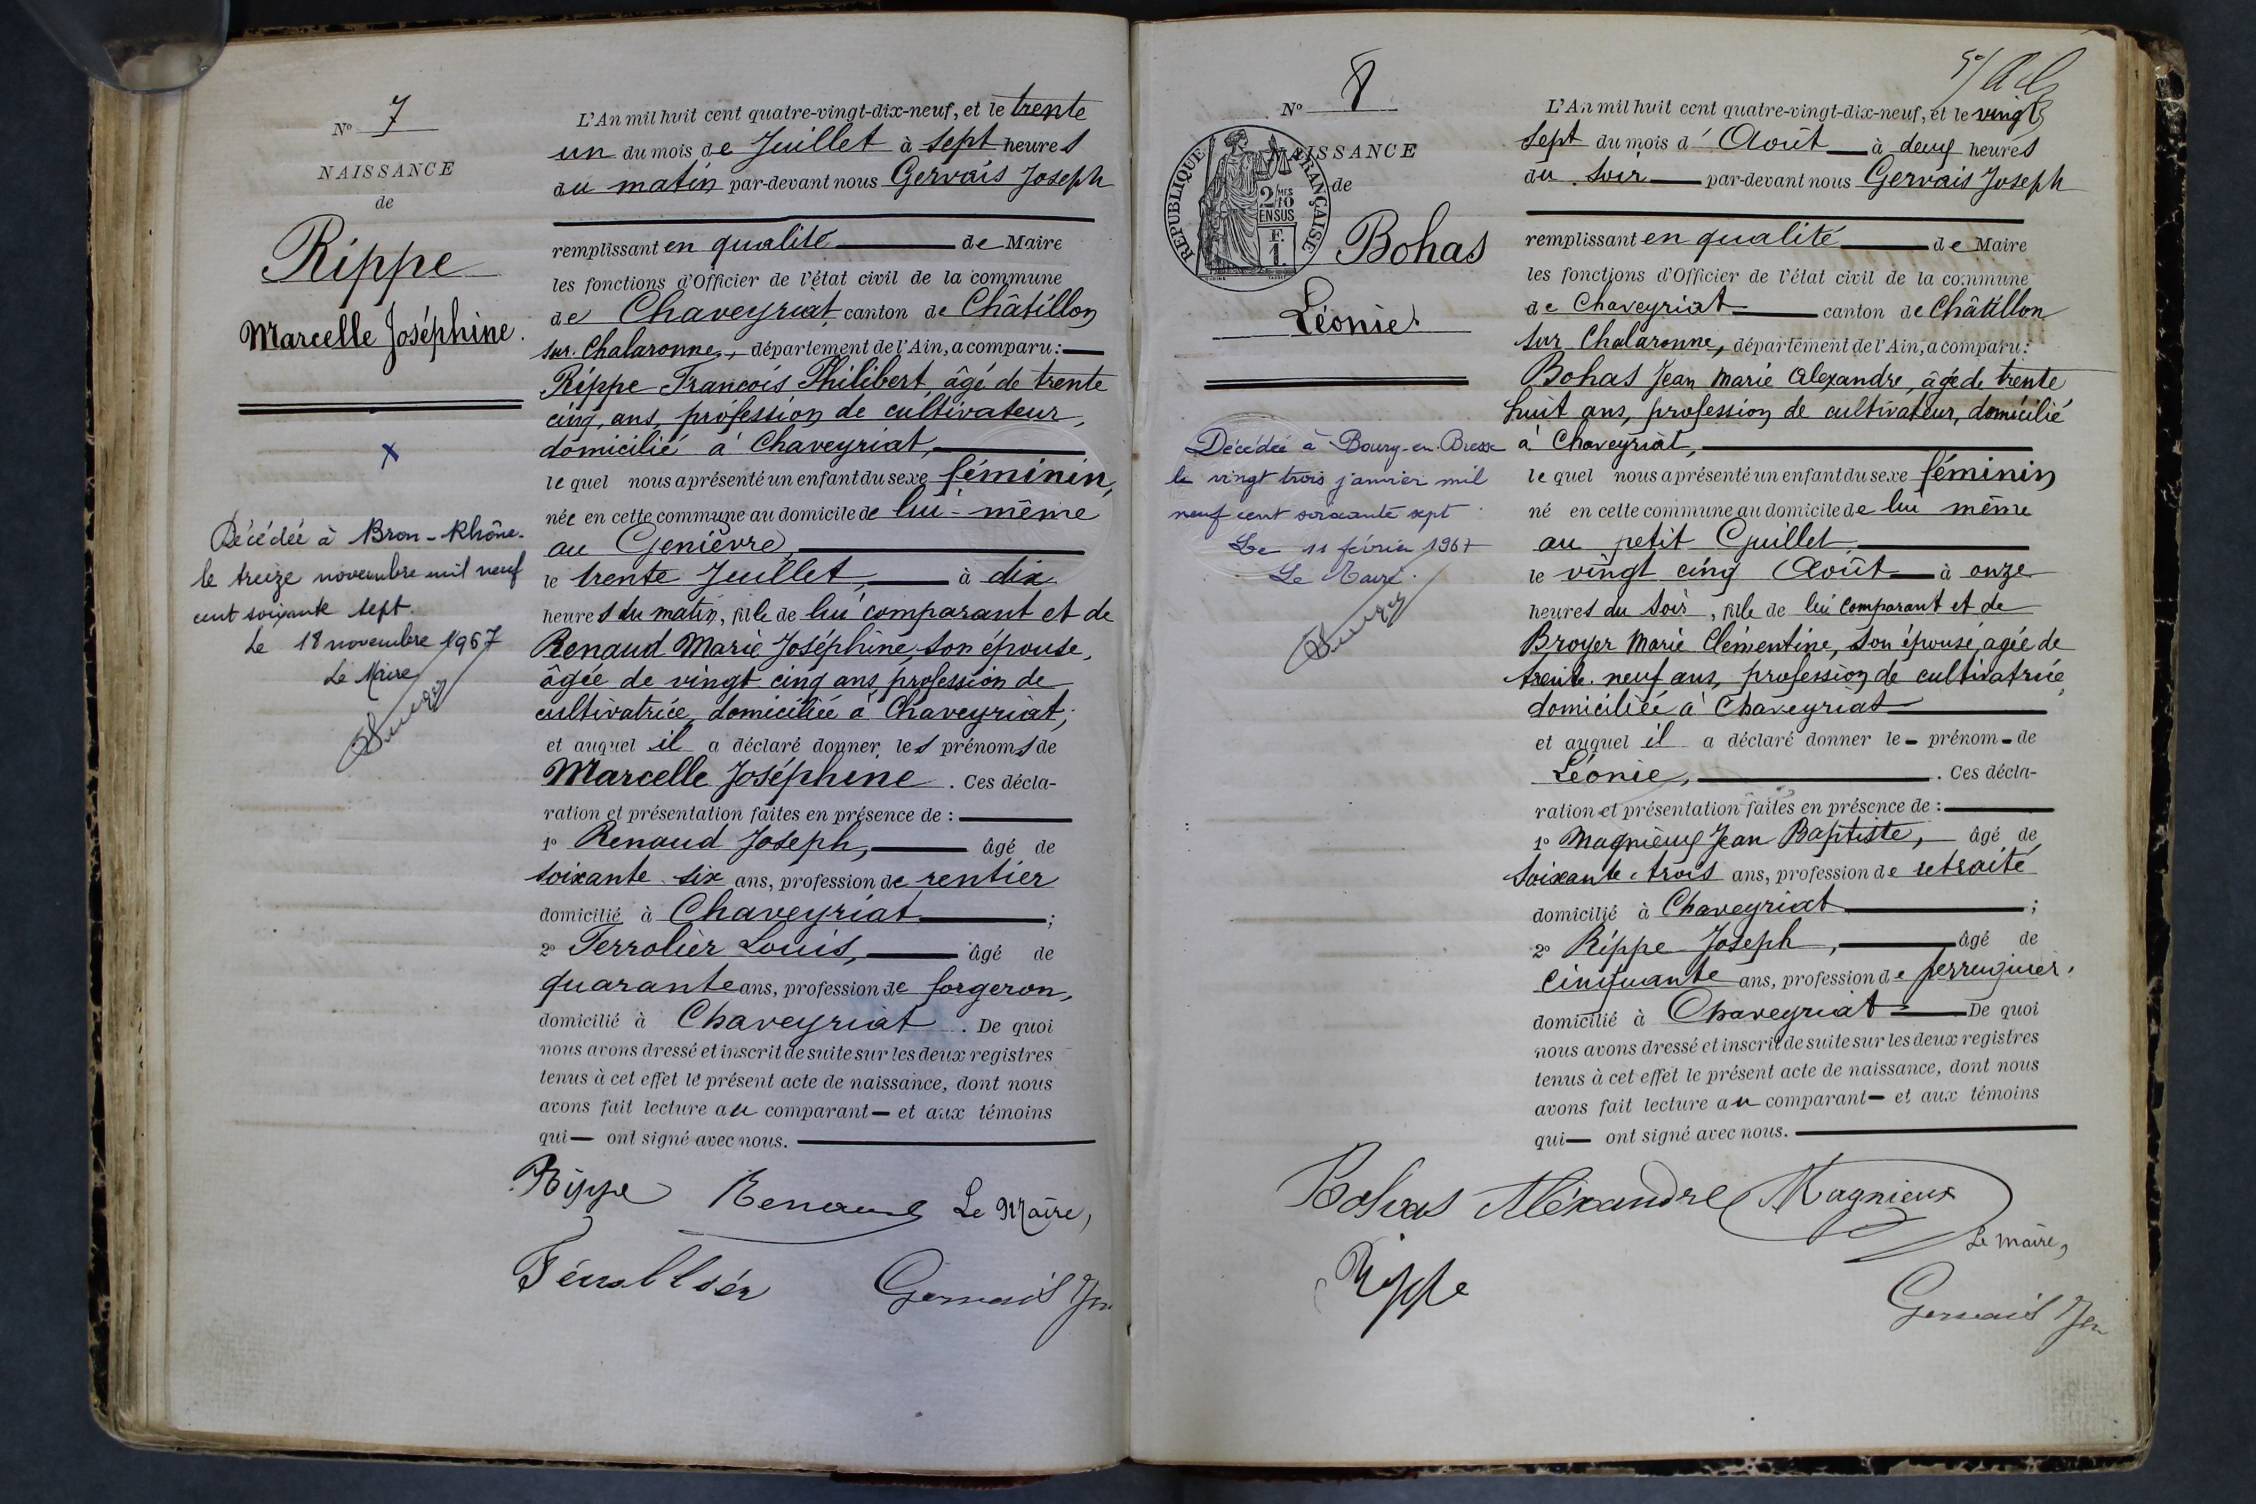 N° 7
NAISSANCE
de
Rippe
Marcelle Joséphine.
Décédée à Bron-Rhône.
le treize novembre mil neuf
cent soixante sept.
Le 18 novembre 1967
Le Maire
L'An mil huit cent quatre-vingt-dix-neuf, et le trente
un du mois de Juillet à sept heures
du matin par-devant nous Gervais Joseph
remplissant en qualité de Maire
les fonctions d'Officier de l'état civil de la commune
de Chaveyriat canton de Châtillon
sur Chalaronne, département de l'Ain, a comparu :
Rippe François Philibert, âgé de trente
cinq, ans, profession de cultivateur,
domicilié à Chaveyriat,
le quel nous a présenté un enfant du sexe féminin,
née en cette commune au domicile de lui-même
au Genièvre,
le trente Juillet, à dix
heures du matin, fille de lui comparant et de
Renaud Marie Joséphine, son épouse,
âgée de vingt cinq ans, profession de
cultivatrice, domiciliée à Chaveyriat;
et auquel il a déclaré donner les prénoms de
Marcelle Joséphine. Ces décla-
ration et présentation faites en présence de :
1° Renaud Joseph, âgé de
soixante six ans, profession de rentier
domicilié à Chaveyriat ;
2° Ferrolier Louis, âgé de
quarante ans, profession de forgeron,
domicilié à Chaveyriat. De quoi
nous avons dressé et inscrit de suite sur les deux registres
tenus à cet effet le présent acte de naissance, dont nous
avons fait lecture au comparant et aux témoins
qui ont signé avec nous.
Rippe Renaud Le Maire,
Gervais Jh
N° 8
NAISSANCE
de
RÉPUBLIQUE FRANÇAISE
2/10 MES
EN SUS
F.
1.
Bohas
Léonie.
Décédée à Bourg-en-Bresse
le vingt trois janvier mil
neuf cent soixante sept.
Le 11 février 1967
Le Maire.
L'An mil huit cent quatre-vingt-dix-neuf, et le vingt
sept du mois d'Août à deux heures
du soir par-devant nous Gervais Joseph
remplissant en qualité de Maire
les fonctions d'Officier de l'état civil de la commune
de Chaveyriat canton de Châtillon
sur Chalaronne, département de l'Ain, a comparu :
Bohas Jean Marie Alexandre, âgé de trente
huit ans, profession de cultivateur, domicilié
à Chaveyriat,
le quel nous a présenté un enfant du sexe féminin
né en cette commune au domicile de lui même
au petit Cuillet
le vingt cinq Août à onze
heures du soir, fille de lui comparant et de
Broyer Marie Clémentine, son épouse, agée de
trente neuf ans, profession de cultivatrice,
domiciliée à Chaveyriat
et auquel il a déclaré donner le prénom de
Léonie, . Ces décla-
ration et présentation faites en présence de :
1° Magnieux Jean Baptiste, âgé de
soixante trois ans, profession de retraité
domicilié à Chaveyriat ;
2° Rippe Joseph, âgé de
Cinquante ans, profession de perruquier,
domicilié à Chaveyriat De quoi
nous avons dressé et inscrit de suite sur les deux registres
tenus à cet effet le présent acte de naissance, dont nous
avons fait lecture au comparant et aux témoins
qui ont signé avec nous.
Bohas Aléxandre Magnieux
Le Maire,
Rippe
Gervais Jh